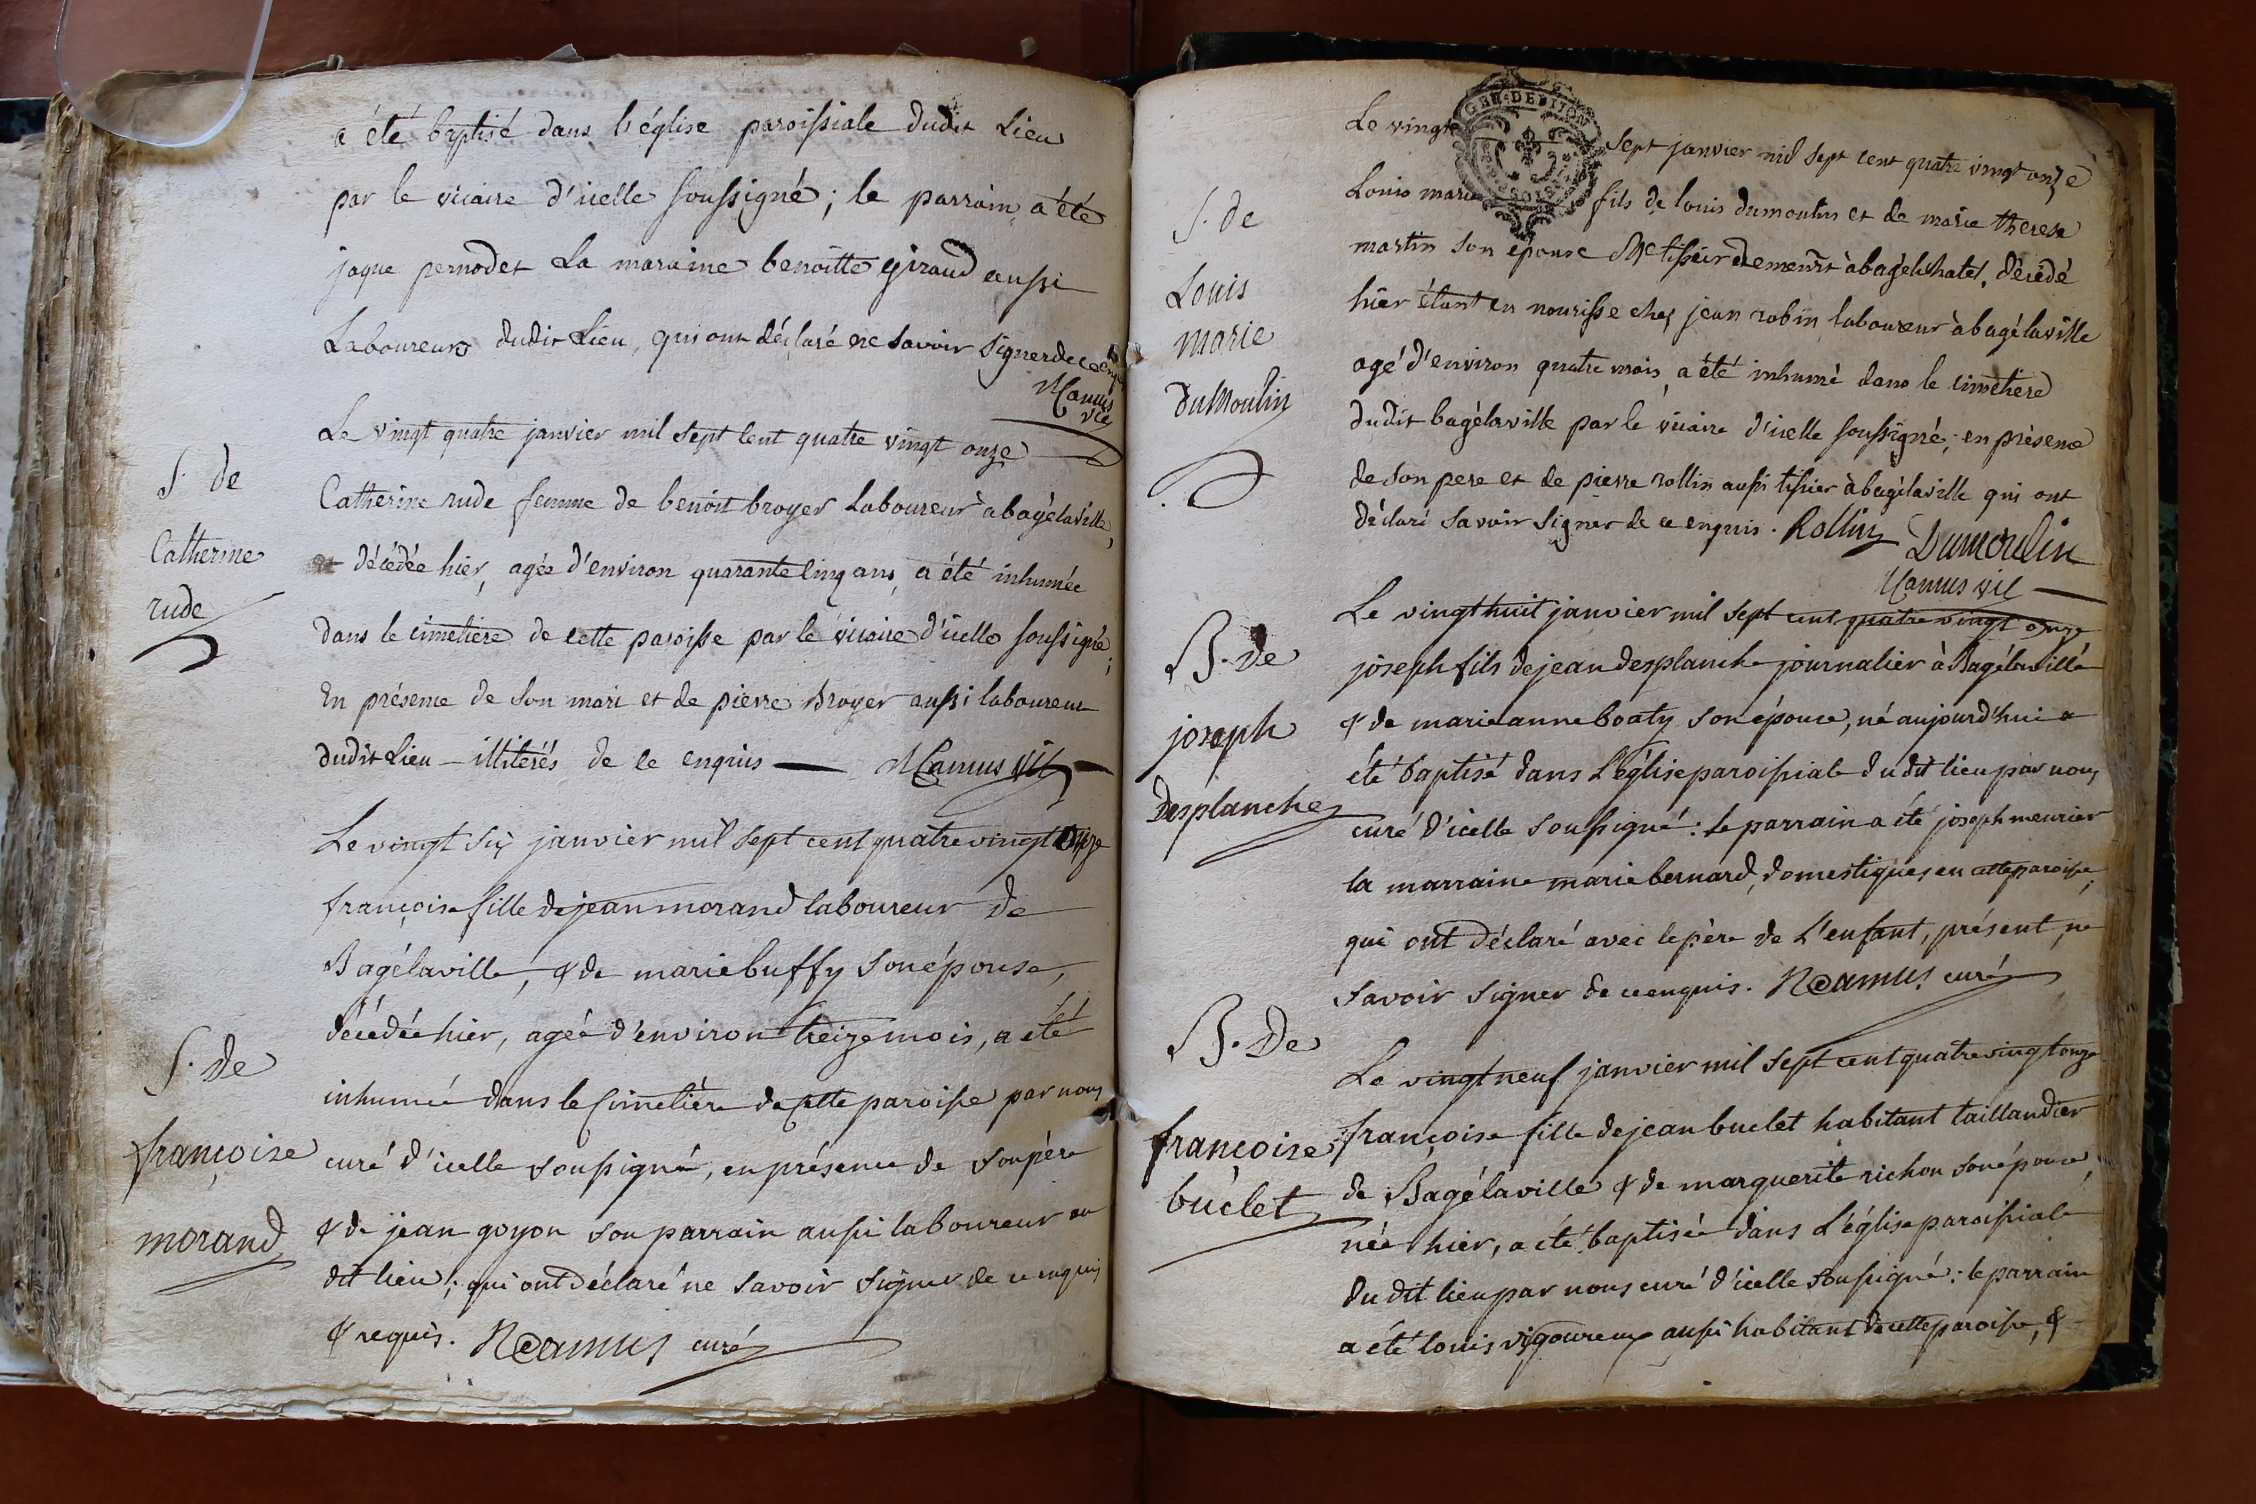 a été baptisé dans l'église paroissiale dudit Lieu
par le vicaire d'icelle soussigné; le parrain a été
jaque pernodet La maraine benoitte giraud aussi
Laboureurs dudit Lieu, qui ont déclaré ne savoir signer de ce enquis
NCamus
vic
S. de
Catherine
rude
Le vingt quatre janvier mil sept cent quatre vingt onze
Catherine rude femme de benoit broyer Laboureur à bagélaville,
décédée hier, agée d'environ quarante cinq ans, a été inhumée
dans le cimetiere de cette paroisse par le vicaire d'icelle soussigné;
En présence de son mari et de pierre Broyer aussi laboureur
dudit Lieu - illitérés de ce enquis — NCamus Vic
S. De
françoise
morand
Le vingt six janvier mil sept cent quatre vingt onze
françoise fille de jean morand laboureur de
Bagélaville, & de marie buffy son épouse,
décédée hier, agée d'environ treize mois, a été
inhumée dans le cimetière de cette paroisse par nous
curé d'icelle soussigné, en présence de son père
& de jean goyon son parrain aussi laboureur au
dit lieu; qui ont déclaré ne savoir signer de ce enquis
& requis. NCamus curé
GEN. DE DIJON
S. de
Louis
marie
duMoulin
Le vingt sept janvier mil sept cent quatre vingt onze
Louis marie fils de louis dumoulin et de marie therese
martin son épouse Me tissier demeurt à bagé le chatel, décédé
hier étant en nourisse chez jean robin laboureur à bagélaville
agé d'environ quatre mois, a été inhumé dans le cimetiere
dudit bagélaville par le vicaire d'icelle soussigné; en présence
de son pere et de pierre rollin aussi tissier à bagélaville qui ont
déclaré savoir signer de ce enquis. Rollin Dumoulin
NCamus vic
B. De
joseph
Desplanche
Le vingt huit janvier mil sept cent quatre vingt onze
joseph fils de jean desplanche journalier à Bagélaville
& de marie anne boaty son épouse, né aujourd'hui a
été baptisé dans L'église paroissiale du dit lieu par nous
curé d'icelle soussigné: le parrain a été joseph meurier
la marraine marie bernard, domestiques en cette paroisse,
qui ont déclaré avec le père de L'enfant, présent, ne
savoir signer de ce enquis. NCamus curé
B. De
françoise
buclet
Le vingt neuf janvier mil sept cent quatre vingt onze
françoise fille de jean buclet habitant taillandier
de Bagélaville & de marguerite richon son épouse,
née hier, a été baptisée dans L'église paroissiale
du dit lieu par nous curé d'icelle soussigné: le parrain
a été louis vigoureux aussi habitant de cette paroisse, &